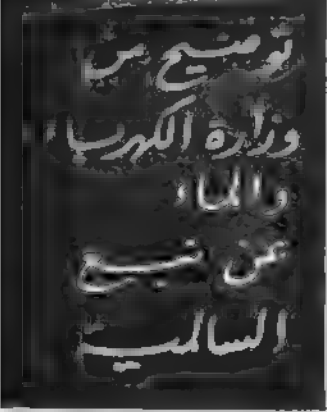 توضيح من
وزارة الكهرباء
والماء
عن
السالمي